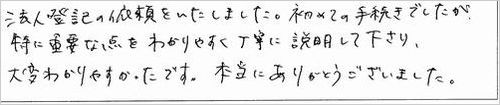 法人登記の依頼をいたしました。初めての手続きでしたが
特に重要な点をわかりやすく丁寧に説明して下さり、
大変わかりやすかったです。本当にありがとうございました。